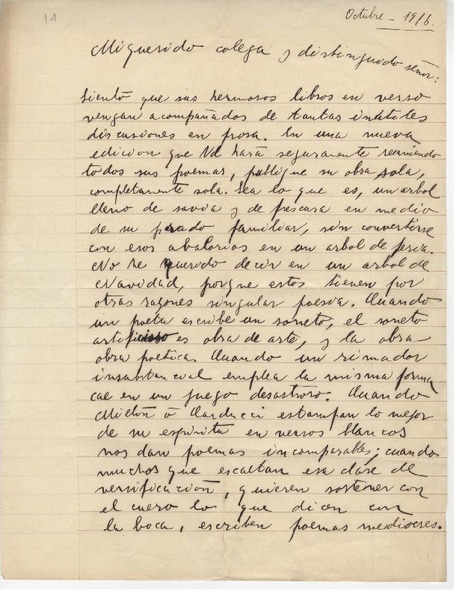 11
Octubre - 1916.
Mi querido colega y distinguido señor:
Siento que sus hermosos libros en verso
vengan acompañados de tantas inútiles
discusiones en prosa. En una nueva
edicion que Vd hará seguramente reuniendo
todos sus poemas, publique su obra sola,
completamente sola. Sea lo que es, un arbol
lleno de savia y de frescura en medio
de su prado familiar, sin convertirse
con esos abalorios en un arbol de feria.
No he querido decir en un arbol de
Navidad, porque estos tienen por
otras razones singular poesia. Cuando
un poeta escribe un soneto, el soneto
es obra de arte, y la obra
obra poetica. Cuando un rimador
insustancial emplea la misma forma
cae en un juego desastroso. Cuando
Milton ó Carducci estampan lo mejor
de su espiritu en versos blancos
nos dan poemas incomparables; cuando
muchos que exaltan esa clase de
versificación, quieren sostener con
el cuero lo que dicen con
la boca, escriben poemas mediocres.